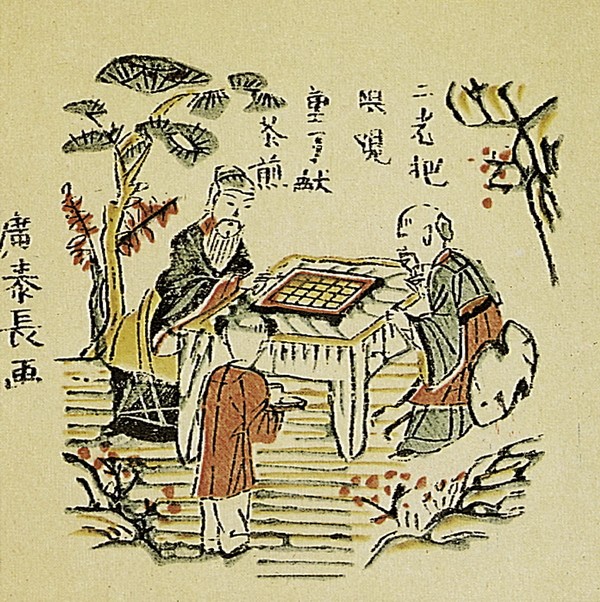 二老把
童子献
茶煎
廣泰長画